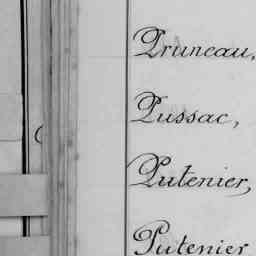 Pruneau,
Pussac,
Putenier,
Putenier